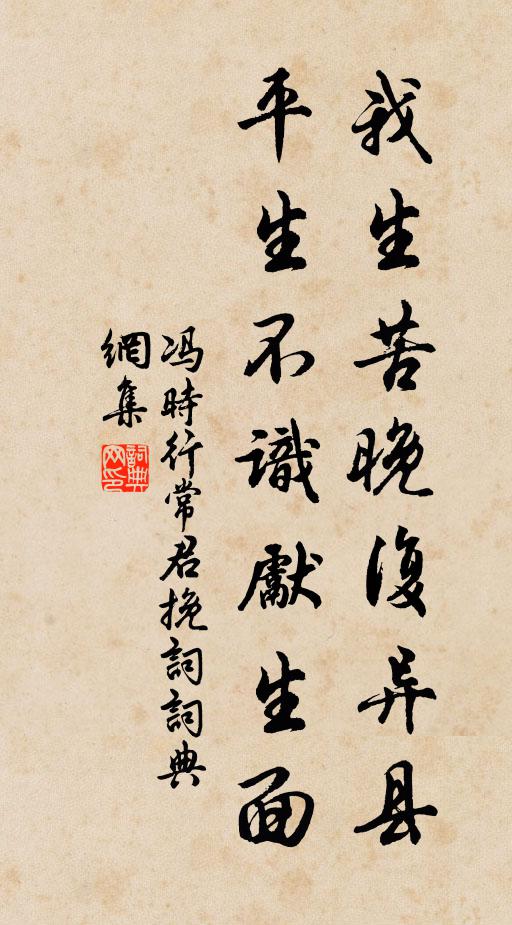 我生苦晚復异县
平生不識獻生面
冯時行常君挽詞詞典
網集
詞典网印